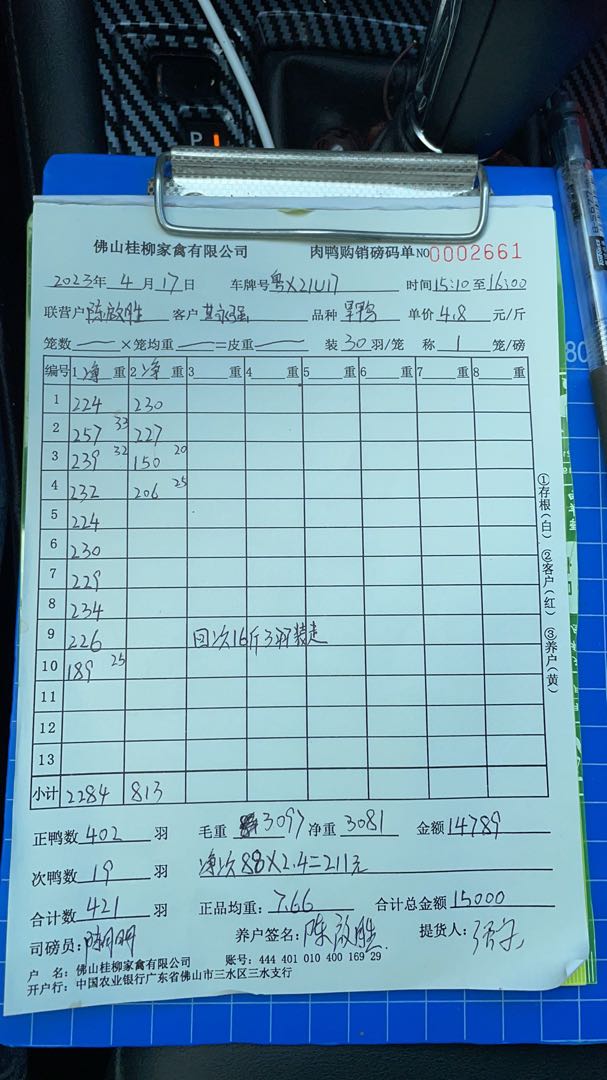 P
佛山桂柳家禽有限公司 肉鸭购销磅码单 NO 0002661
2023年 4 月 17 日 车牌号 粤X21U17 时间 15:10 至 16:00
联营户 陈啟胜 客户 品种 单价 4.8 元/斤
笼数 ×笼均重 =皮重 装 30 羽/笼 称 1 笼/磅
编号 1 净 重 2 净 重 3 重 4 重 5 重 6 重 7 重 8 重
1 224 230
2 257 33 227
3 239 32 150 20
4 232 206 25
5 224
6 230
7 229
8 234
9 226 回次16斤3羽装走
10 189 25
11
12
13
小计 2284 813
①存根(白) ②客户(红) ③养户(黄)
正鸭数 402 羽 毛重 3097 净重 3081 金额 14789
次鸭数 19 羽 净次88×2.4=211元
合计数 421 羽 正品均重: 7.66 合计总金额 15000
司磅员: 养户签名: 陈啟胜 提货人:
户 名: 佛山桂柳家禽有限公司 账号: 444 401 010 400 169 29
开户行: 中国农业银行广东省佛山市三水区三水支行
80